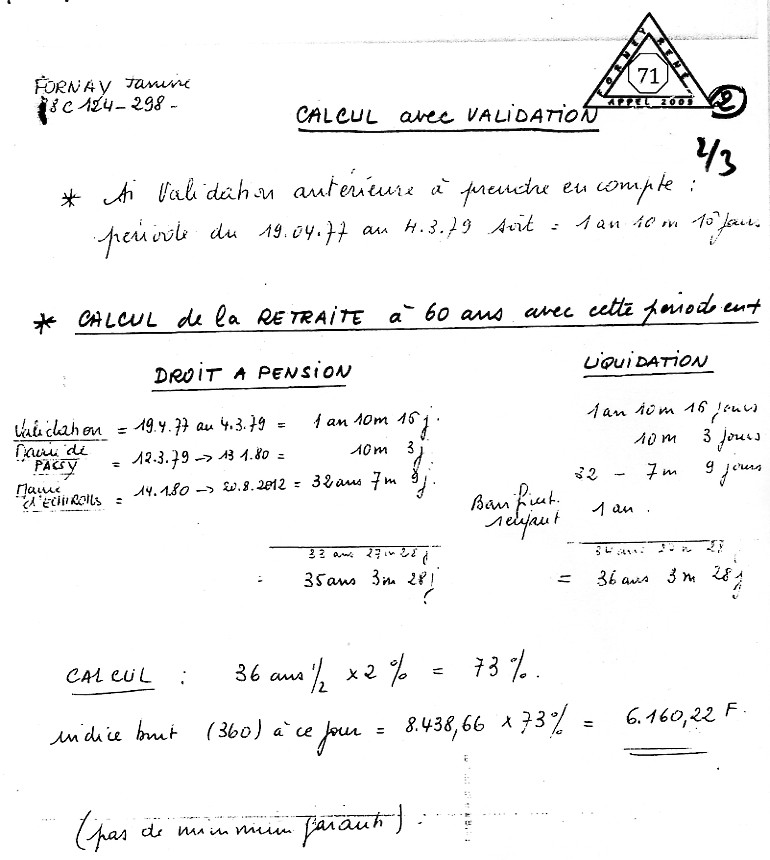 FORNEY RENE
71
APPEL 2005
2
FORNAY Janine
18C 124-298-
CALCUL avec VALIDATION
2/3
* Si Validation antérieure à prendre en compte :
période du 19.04.77 au 4.3.79 soit = 1 an 10 m 15 jours
* CALCUL de la RETRAITE à 60 ans avec cette période en+
DROIT A PENSION
LIQUIDATION
Validation = 19.4.77 au 4.3.79 = 1 an 10m 16 j.
1 an 10 m 16 jours
Mairie de PASSY = 12.3.79 -> 13 1.80 = 10m 3j
10 m 3 jours
Mairie d'ECHIROLLES = 14.1.80 -> 20.8.2012 = 32 ans 7 m 9j.
32 - 7 m 9 jours
1 an .
33 ans 27 m 28 j
34 ans 27 m 28
= 35 ans 3 m 28 j
= 36 ans 3 m 28 j
CALCUL : 36 ans 1/2 x 2 % = 73 %.
indice brut (360) à ce jour = 8.438,66 x 73% = 6.160,22 F.
(pas de minimum garanti) .